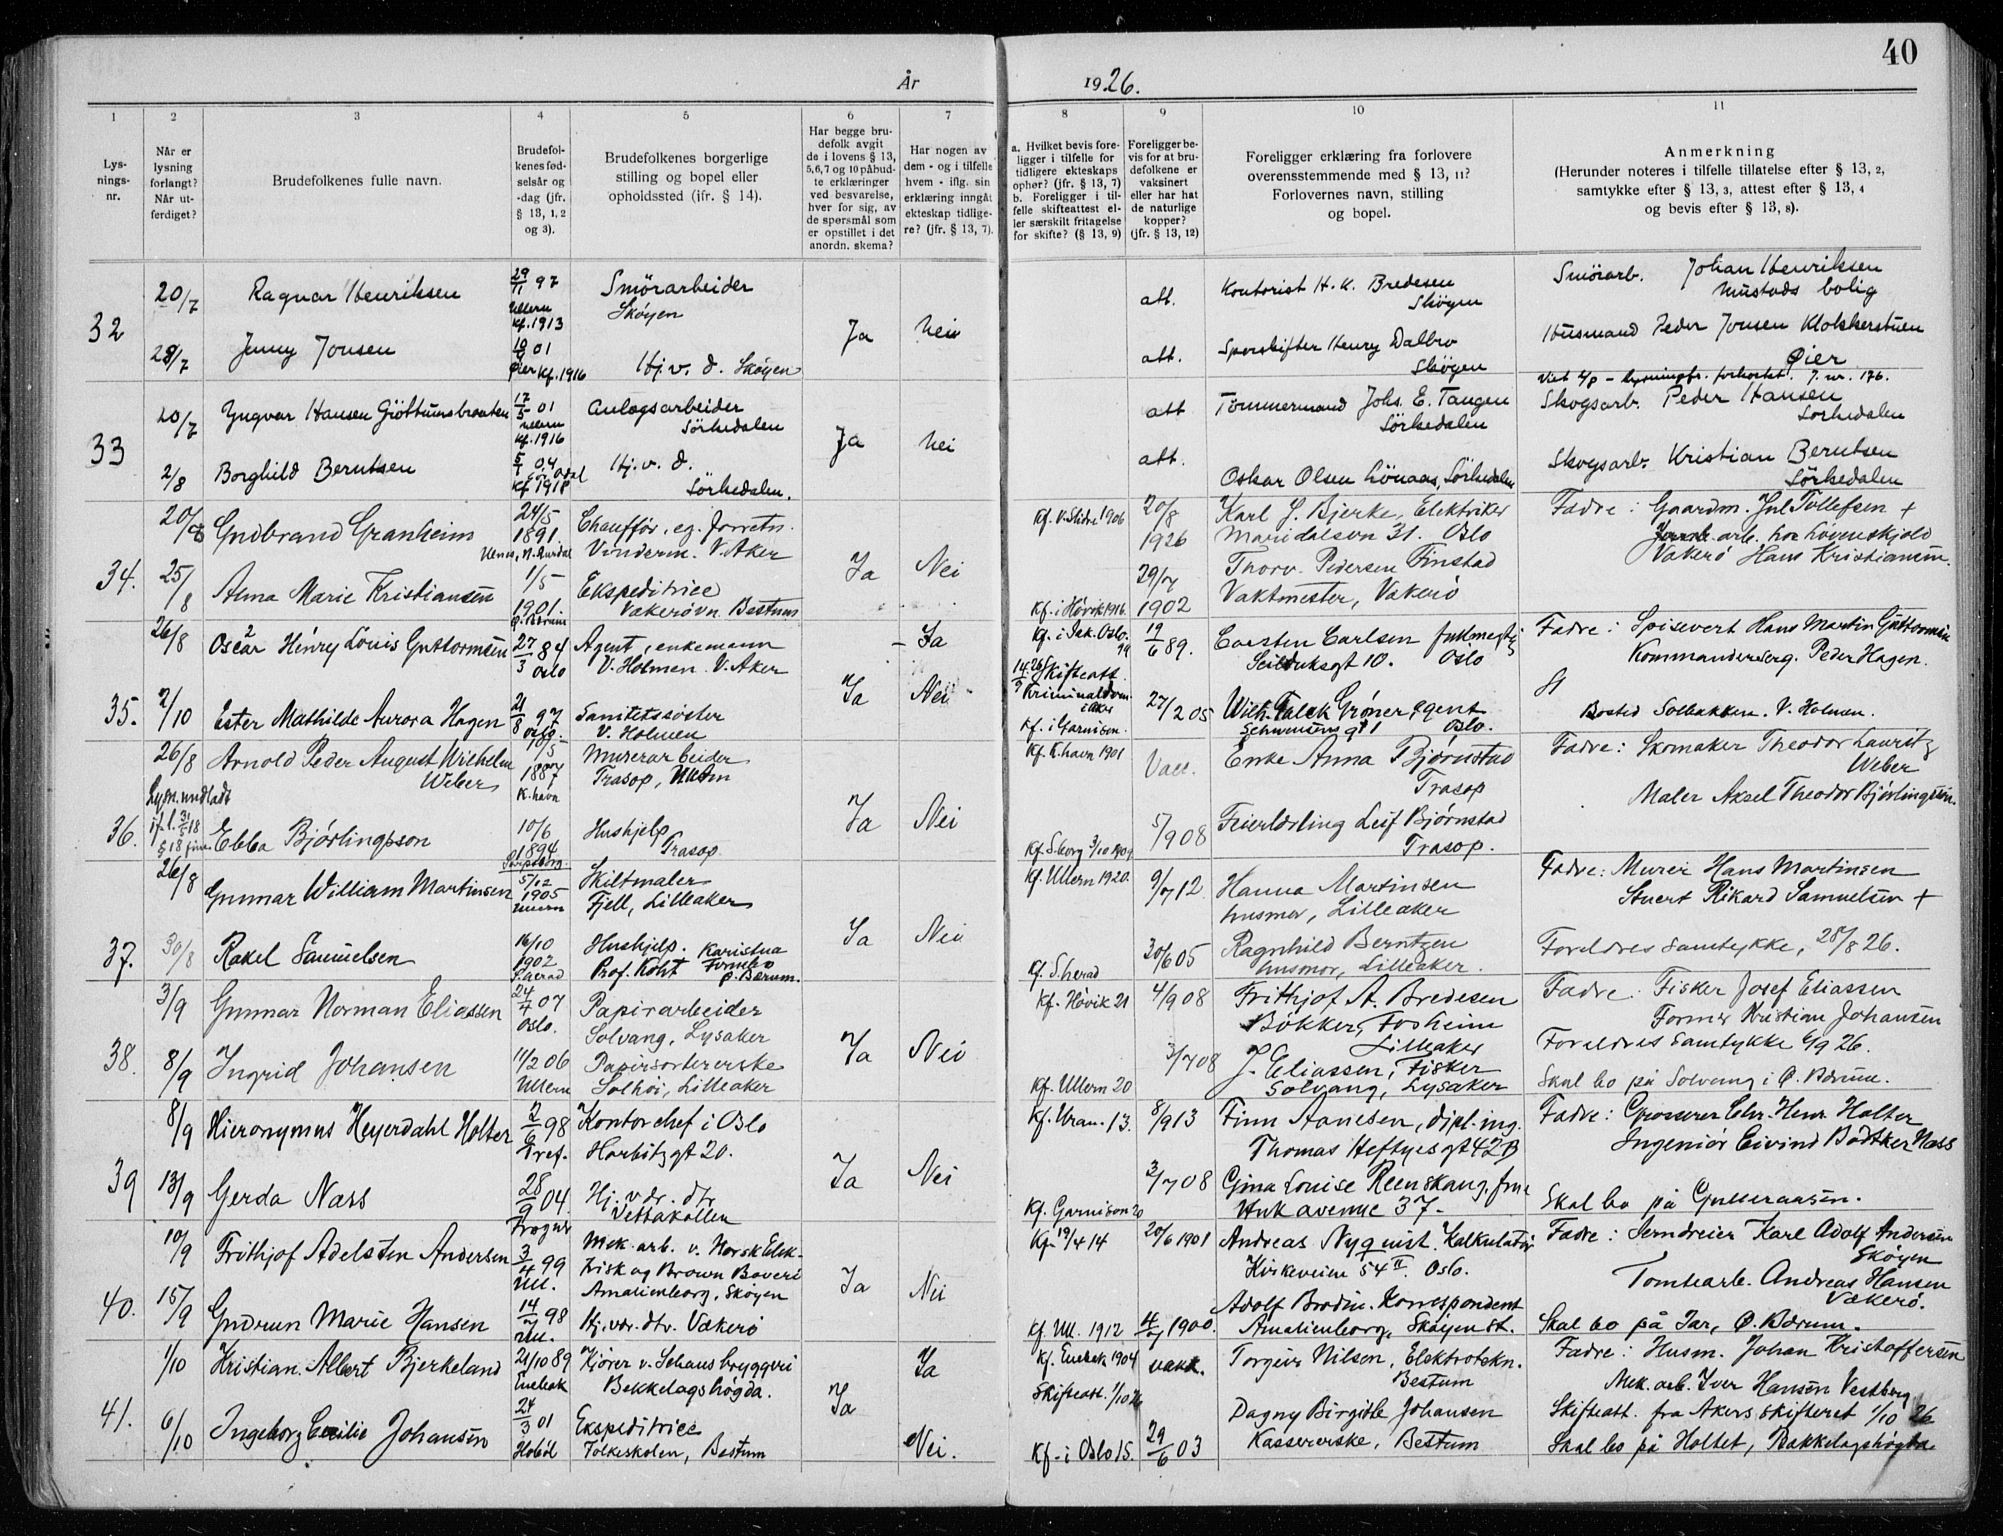 40
År 1926.
1 2 3 4 5 6 7 8 9 10 11
Lysningsnr.
Når er lysning forlangt? Når utferdiget?
Brudefolkenes fulle navn.
Brudefolkenes fødselsår og -dag (jfr. § 13, 1, 2 og 3).
Brudefolkenes borgerlige stilling og bopel eller opholdssted (jfr. § 14).
Har begge brudefolk avgit de i lovens § 13, 5,6,7 og 10 påbudte erklæringer ved besvarelse, hver for sig, av de spørsmål som er opstillet i det anordn. skema?
Har nogen av dem - og i tilfelle hvem - iflg. sin erklæring inngåt ekteskap tidligere? (jfr. § 13, 7).
a. Hvilket bevis foreligger i tilfelle for tidligere ekteskaps ophør? (jfr. § 13, 7) b. Foreligger i tilfelle skifteattest eller særskilt fritagelse for skifte? (§ 13, 9)
Foreligger bevis for at brudefolkene er vaksinert eller har hat de naturlige kopper? (jfr. § 13, 12)
Foreligger erklæring fra forlovere overensstemmende med § 13, 11? Forlovernes navn, stilling og bopel.
Anmerkning (Herunder noteres i tilfelle tillatelse efter § 13, 2, samtykke efter § 13, 3, attest efter § 13, 4 og bevis efter § 13, 8).
32
20/7 Ragnar Henriksen 29/11 97 Ullern Kf. 1913 Smörarbeider Skøyen
att. Kontorist H. K. Bredesen Skøyen
Smörarb. Johan Henriksen Mustads bolig
28/7 Jenny Jonsen 01 Øier Kf. 1916 Hj. v. d. Skøyen Ja Nei
att. Sporskifter Henry Dalbro Skøyen
Husmand Peder Jonsen Klokkerstuen Øier
33
20/7 Yngvar Hansen Gjöttumsbraaten 17/5 01 Ullern Kf. 1916 Anlægsarbeider Sörkedalen
att Tömmermand Johs. E. Tangen Sörkedalen
Skogsarb. Peder Hansen Sörkedalen
2/8 Borghild Berntsen 5/1 04 Kf 1918 Hj. v. d. Sörkedalen. Ja Nei
att. Oskar Olsen Lönaas, Sörkedalen
Skogsarb. Kristian Berntsen Sörkedalen
34.
20/8 Gudbrand Granheim 24/5 1891 Chauffør, eg. forretn. Vinderen. V. Aker
Kf. V. Slidre 1906 20/8 1926 Karl J. Bjerke, Elektriker Maridalsvn 31. Oslo
Fadre: Gaardm. Jul Tollefsen +
25/8 Anna Marie Kristiansen 1/5 1901. Ø. Bærum Ekspeditrice Vækerøvn. Bestum Ja Nei
Kf. i Høvik 1916. 29/7 1902 Thorv. Pedersen Finstad Vaktmester, Vækerø
arb. hos Løvenskjold Vækerø Hans Kristiansen.
35.
26/8 Oscar Henry Louis Guttormsen 27/3 84 Oslo Agent, enkemann V. Holmen. V. Aker - Ja
Kf. i Jak. Oslo. 19/6 89. Carsten Carlsen fullmegtig Seilduksgt 10. Oslo
Fadre: Spisevert Hans Martin Guttormsen
Kommandersersg. Peder Hagen.
2/10 Ester Mathilde Aurora Hagen 21/8 97 Oslo. Sanitetssøster V. Holmen Ja Nei
Skifteatt. Kf. i Garnison. 27/2 05 Wilh. Falck Grøner, agent Schwensensgt 1 Oslo.
Bosted Solbakken. V. Holmen.
36.
26/8 Arnold Peder August Wilhelm Weber 10/5 1887 K.havn Murerarbeider Trasop, Ullern
Kf. K.havn 1901 Vacc. Enke Anna Bjørnstad Trasop
Fadre: Skomaker Theodor Lauritz Weber
Lysn. undladt
Ebba Bjørlingsson 10/6 1894 Sarpsborg. Hushjelp Trasop Ja Nei
Kf. S.borg 3/10 1909 5/9 08 Feierlærling Leif Bjørnstad Trasop.
Maler Aksel Theodor Bjørlingsson.
37.
26/8 Gunnar William Martinsen 5/12 1905 Ullern Skiltmaler Fjell, Lilleaker
Kf. Ullern 1920. 9/7 12 Hanna Martinsen husmor, Lilleaker
Fadre: Murer Hans Martinsen
Stuert Rikard Samuelsen +
30/8 Rakel Samuelsen 16/10 1902 Hushjelp. Prof. Koht Karistua Fornebo Ø. Bærum. Ja Nei
Kf. S. herad 30/6 05 Ragnhild Berntzen husmor, Lilleaker.
Foreldres samtykke, 28/8 26.
38.
3/9 Gunnar Norman Eliassen 24/7 07 Oslo. Papirarbeider Solvang, Lysaker
Kf. Høvik 21 4/9 08 Frithjof A. Bredesen Bøkker, Fosheim Lilleaker
Fadre: Fisker Josef Eliassen
Former Kristian Johansen
8/9 Ingrid Johansen 11/2 06 Ullern Papirsortererske Solhøi, Lilleaker Ja Nei
Kf. Ullern 20 3/7 08 J. Eliassen, Fisker Solvang, Lysaker
Foreldres samtykke 6/9 26.
Skal bo på Solvang i Ø. Bærum.
39
8/9 Hieronymus Heyerdahl Holter 2/6 98 Kontorchef i Oslo Harbitzgt 20.
Kf. Uran. 13. 8/9 13 Finn Aanesen, dipl. ing. Thomas Heftyesgt 42B
Fadre: Grosserer Chr. Henr. Holter
Ingeniör Eivind Bødtker Næss
13/9 Gerda Næss 28/9 04. Frogner Hj. v dr. dtr. Vettakollen Ja Nei
Kf. Garnison 20 3/7 08 Gina Louise Reenskaug, frue Huk avenue 37.
Skal bo på Gulleraasen.
40.
10/9 Frithjof Adelsten Andersen 3/4 99 Ull. Mek. arb. v. Norsk Elektrisk og Brown Boveri Amalienborg, Skøyen
Kf. 19/4 14 20/6 1901 Andreas Nyquist. Kalkulatør Kirkeveien 54 II. Oslo.
Fadre: Jerndreier Karl Adolf Andersen Skøyen
15/9 Gudrun Marie Hansen 14/7 98 Ull. Hj. vær. dtr. Vækerø Ja Nei
Kf. Ull. 1912 1900. Adolf Brodin. Korrespondent Amalienborg, Skøyen st.
Tomtearb. Andreas Hansen Vækerø.
Skal bo på Jar, Ø. Bærum.
41.
1/10 Kristian Albert Bjerkeland 21/10 89 Enebak Kjører v. Schous bryggeri Bekkelagshøgda. Ja
Kf. Enebak 1904 Skifteatt. 1/10 26 vakk. Torgeir Nilsen, Elektrotekn. Bestum
Fadre: Husm. Johan Kristoffersen
Mek. arb. Iver Hansen Vestberg.
6/10 Ingeborg Cecilie Johansen 24/3 01 Hobøl Ekspeditrice Folkeskolen, Bestum Ja Nei.
Kf. i Oslo 15. 29/6 03 Dagny Birgitte Johansen Kassererske, Bestum
Skifteatt. fra Akers skifteret 1/10 26
Skal bo på Holtet, Bækkelagshøgda